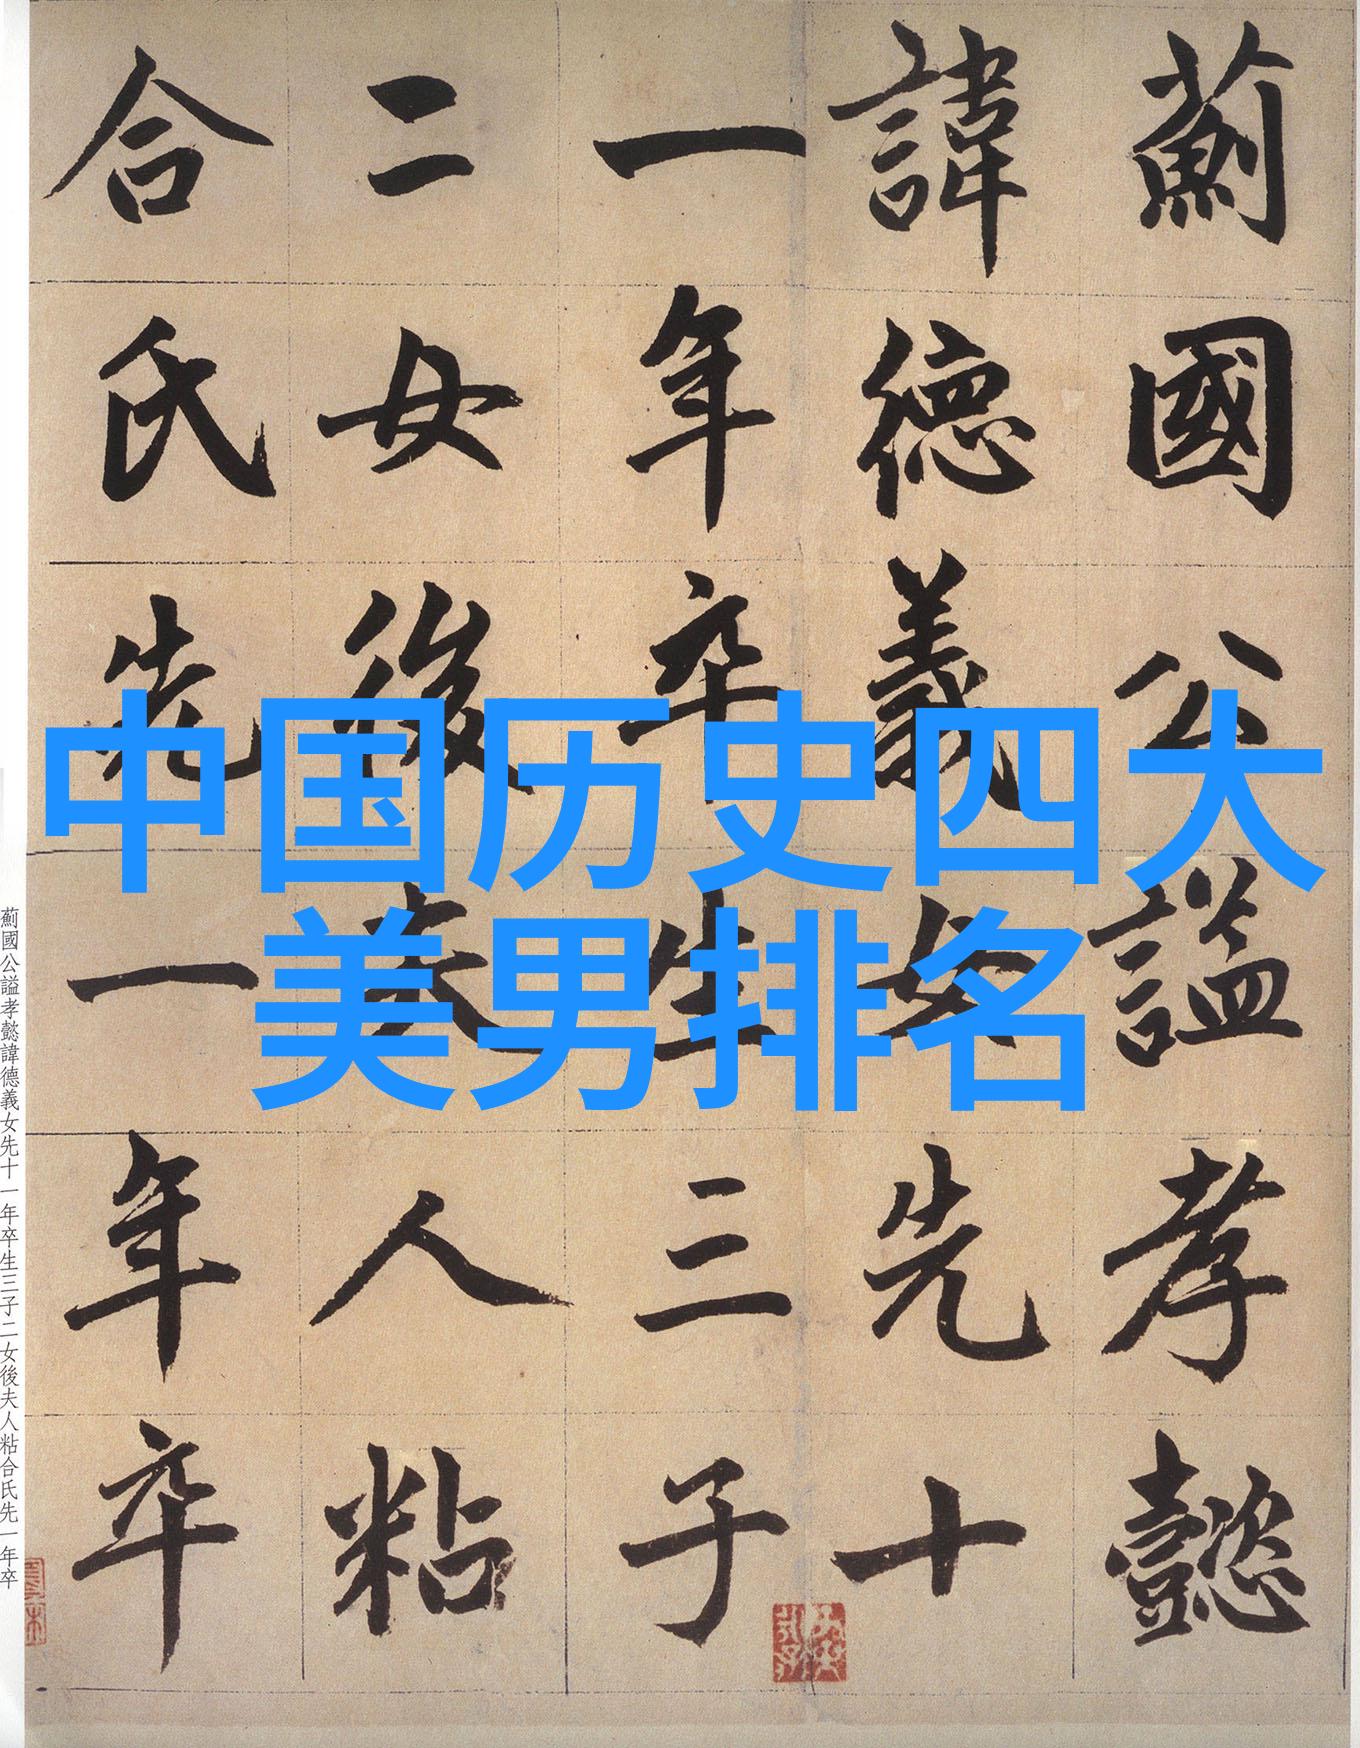 中国历史四大
美男排名
薊國公謚孝懿
諱德義女先十
一年卒生三子
二女後夫人粘
合氏先一年卒
薊國公謚孝懿諱德義女先十一年卒生三子二女後夫人粘合氏先一年卒